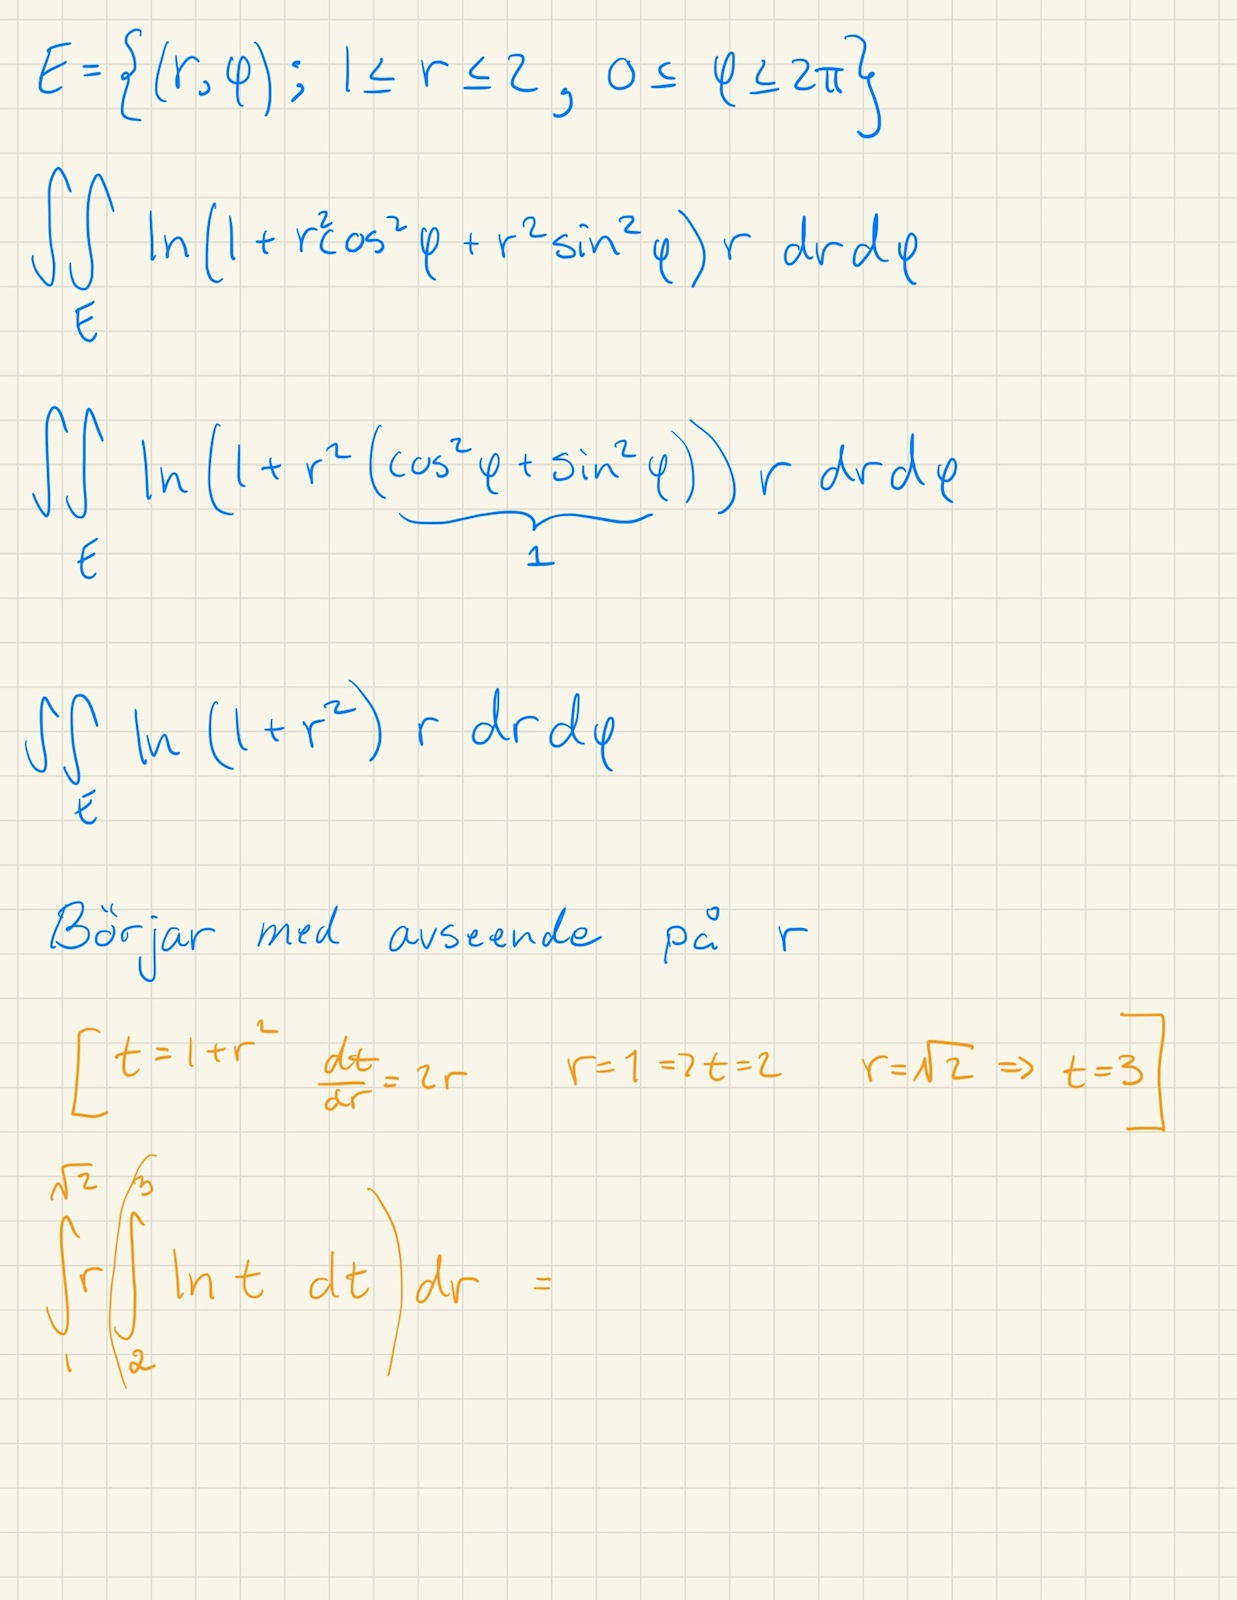 E = {(r, φ); 1 ≤ r ≤ 2, 0 ≤ φ ≤ 2π}
∬_E ln(1 + r²cos²φ + r²sin²φ) r dr dφ
∬_E ln(1 + r²(cos²φ + sin²φ)) r dr dφ
1
∬_E ln(1 + r²) r dr dφ
Börjar med avseende på r
[t = 1 + r² dt/dr = 2r r = 1 => t = 2 r = √2 => t = 3]
∫₁^√2 r(∫₂³ ln t dt) dr =